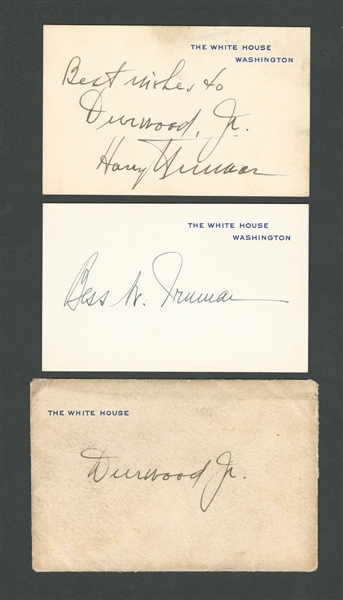 THE WHITE HOUSE
WASHINGTON
Best wishes to
Durwood, Jr.
Harry Truman
THE WHITE HOUSE
WASHINGTON
Bess W. Truman
THE WHITE HOUSE
Durwood Jr.